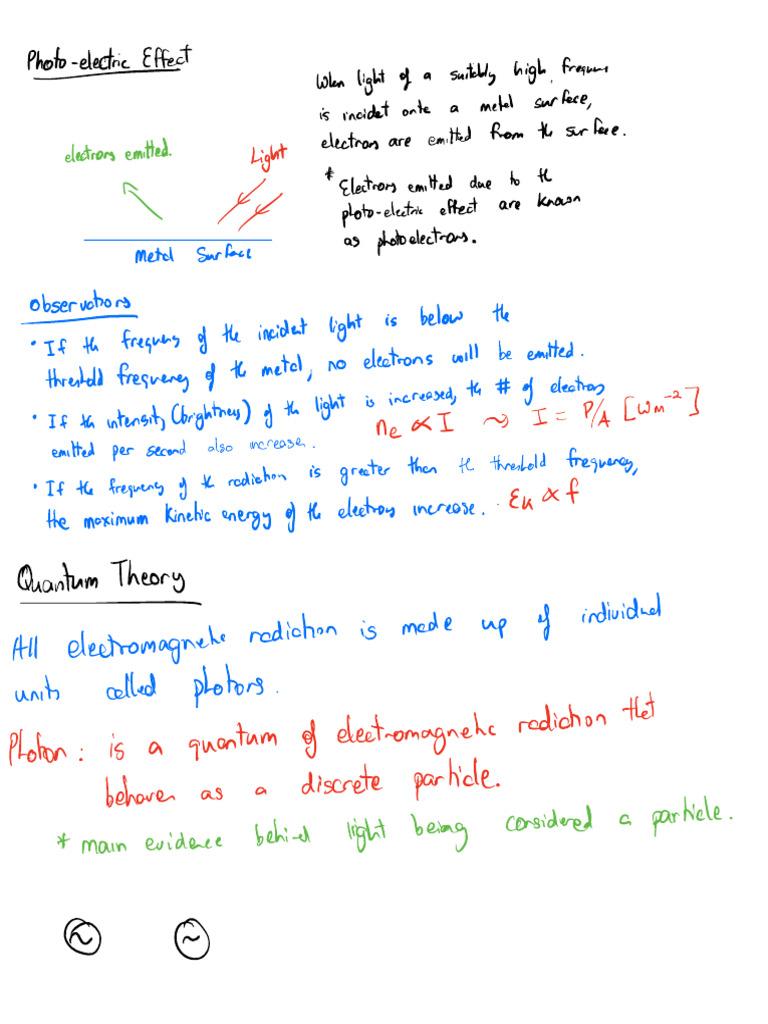 Photo-electric Effect
When light of a suitably high frequency
is incident onto a metal surface,
electrons are emitted from the surface.
* Electrons emitted due to the
photo-electric effect are known
as photoelectrons.
electrons emitted.
Light
Metal Surface
Observations
• If the frequency of the incident light is below the
threshold frequency of the metal, no electrons will be emitted.
• If the intensity (brightness) of the light is increased, the # of electrons
emitted per second also increase.
ne ∝ I ~> I = P/A [Wm⁻²]
• If the frequency of the radiation is greater than the threshold frequency,
the maximum kinetic energy of the electrons increase. Ek ∝ f
Quantum Theory
All electromagnetic radiation is made up of individual
units called photons.
Photon: is a quantum of electromagnetic radiation that
behaves as a discrete particle.
* main evidence behind light being considered a particle.
~ ~